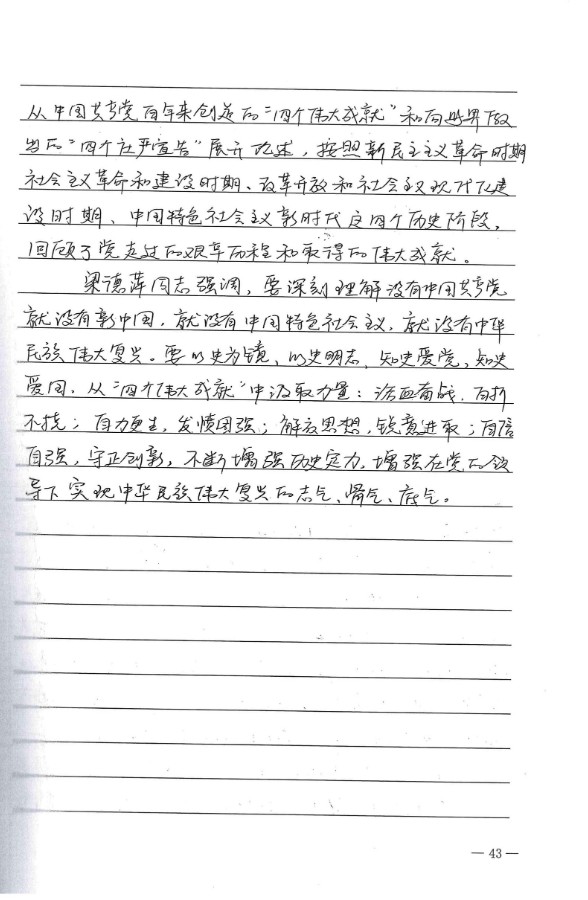 从中国共产党百年来创造的"四个伟大成就"和向世界做
出的"四个庄严宣告"展开论述，按照新民主主义革命时期
社会主义革命和建设时期、改革开放和社会主义现代化建
设时期、中国特色社会主义新时代这四个历史阶段，
回顾了党走过的艰辛历程和取得的伟大成就。
梁德萍同志强调，要深刻理解没有中国共产党
就没有新中国，就没有中国特色社会主义，就没有中华
民族伟大复兴。要以史为镜、以史明志，知史爱党，知史
爱国，从"四个伟大成就"中汲取力量：浴血奋战，百折
不挠；自力更生，发愤图强；解放思想，锐意进取；自信
自强，守正创新，不断增强历史定力，增强在党的领
导下实现中华民族伟大复兴的志气、骨气、底气。
— 43 —